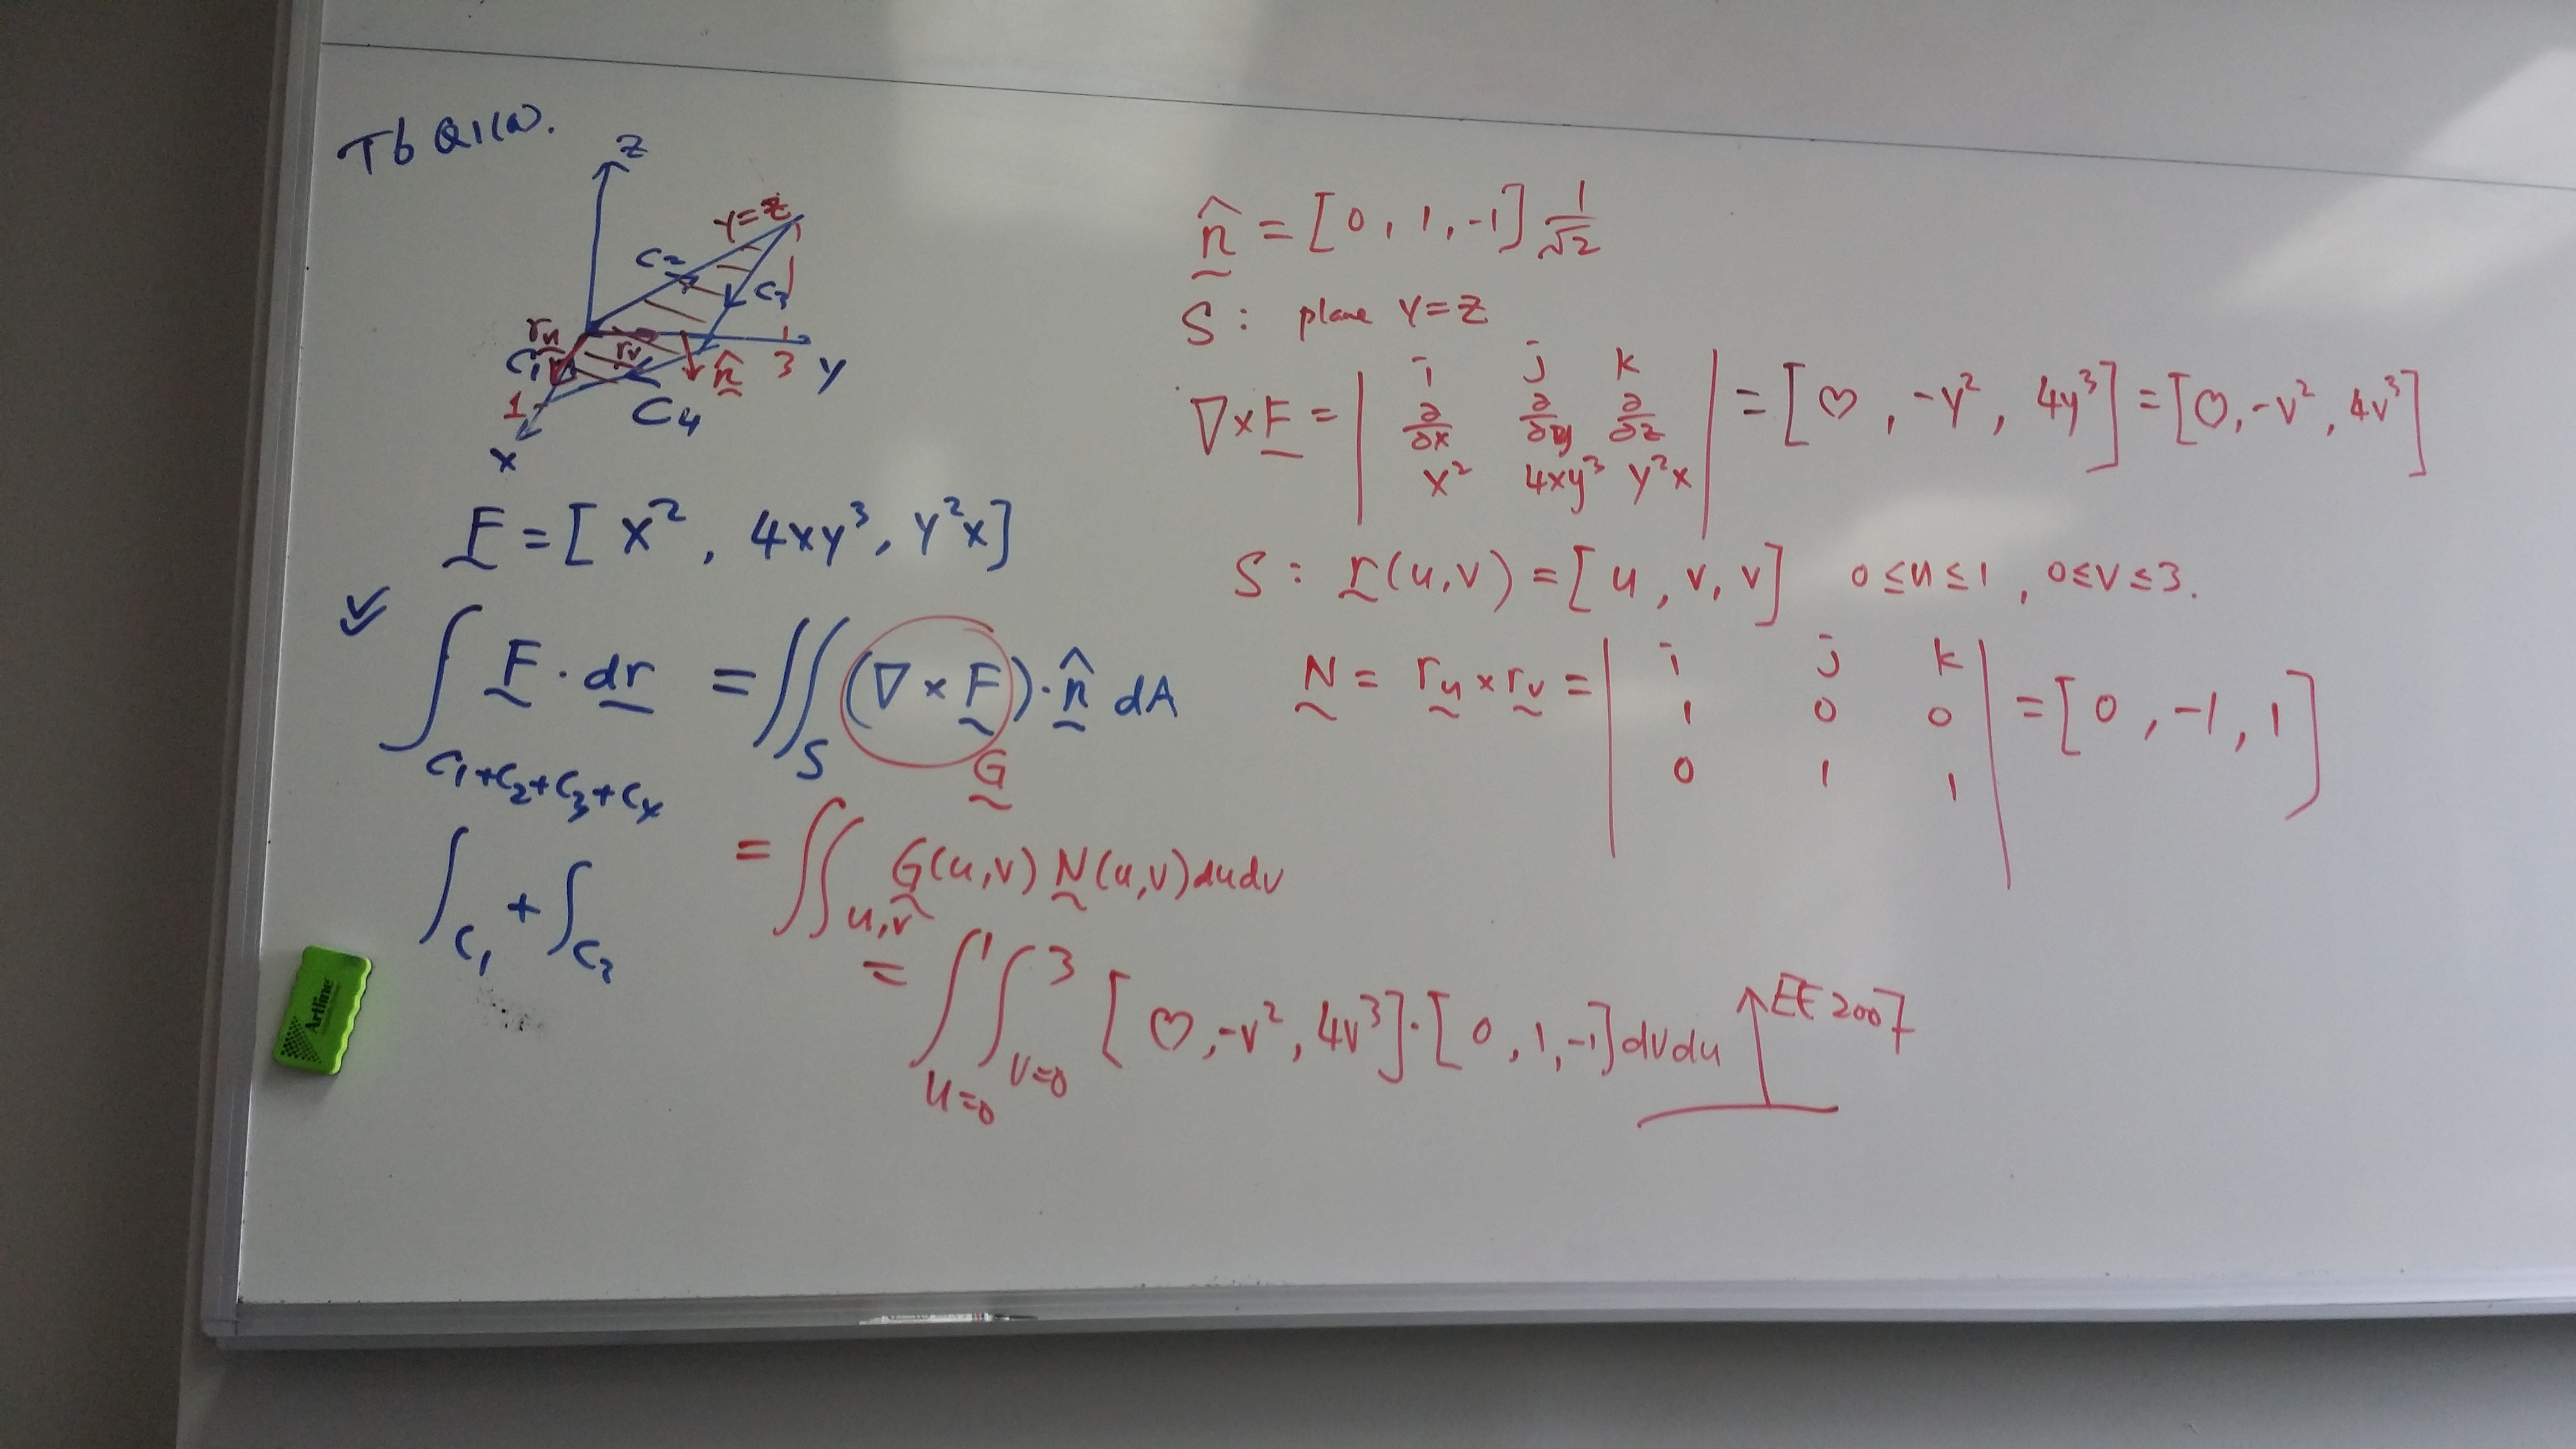 T6 Q1(a).
Z
Y=Z
C2
C3
1
ru
rv
C1
n̂
3
Y
1
C4
X
F = [ x², 4xy³, y²x ]
∫ F · dr = ∬ (∇ × F) · n̂ dA
C1+C2+C3+C4
S
G
= ∬ G(u,v) N(u,v) du dv
u,v
∫C1 + ∫C2
= ∫u=0^1 ∫v=0^3 [ ♡, -v², 4v³ ] · [ 0, 1, -1 ] dv du
EE2007
n̂ = [ 0, 1, -1 ] 1/√2
S: plane Y=Z
∇×F = | i j k
∂/∂x ∂/∂y ∂/∂z
x² 4xy³ y²x | = [ ♡, -y², 4y³ ] = [ ♡, -v², 4v³ ]
S: r(u,v) = [ u, v, v ] 0≤u≤1, 0≤v≤3.
N = ru × rv = | i j k
1 0 0
0 1 1 | = [ 0, -1, 1 ]
Artline